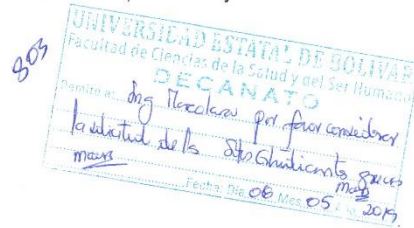 803
UNIVERSIDAD ESTATAL DE BOLIVAR
Facultad de Ciencias de la Salud y del Ser Humano
DECANATO
Remite a: Ing por favor considerar
la solicitud de la Srta.
Fecha: Día 06 Mes 05 2019